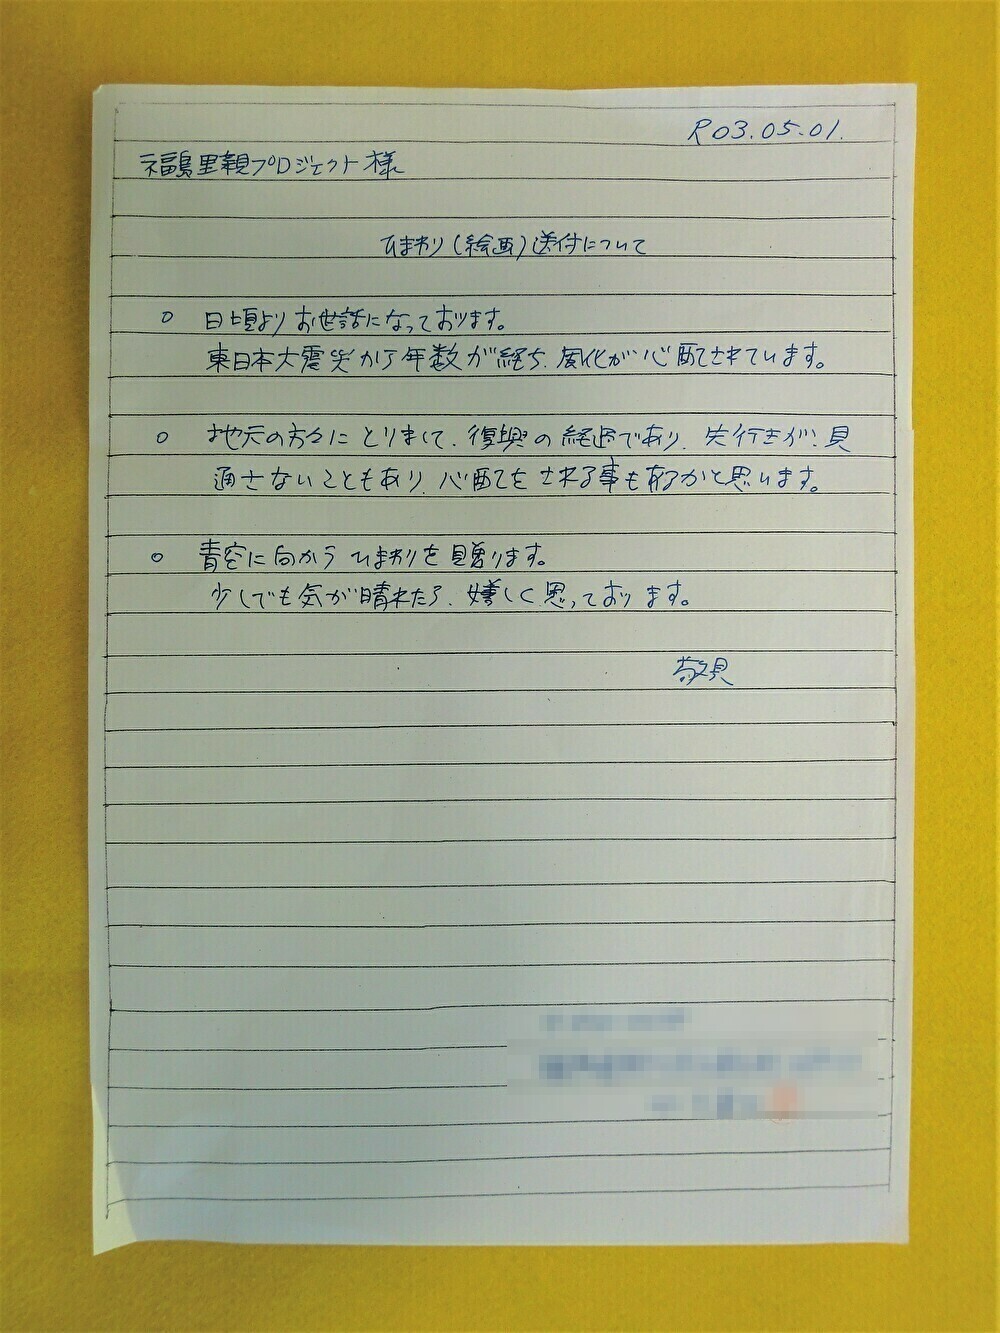 R03.05.01.
福島里親プロジェクト様
ひまわり(絵画)送付について
○ 日頃よりお世話になっております。
東日本大震災から年数が経ち、風化が心配されています。
○ 地元の方々にとりまして、復興の経過であり、先行きが、見
通せないこともあり、心配をされる事も有るかと思います。
○ 青空に向かうひまわりを贈ります。
少しでも気が晴れたら、嬉しく思っております。
敬具